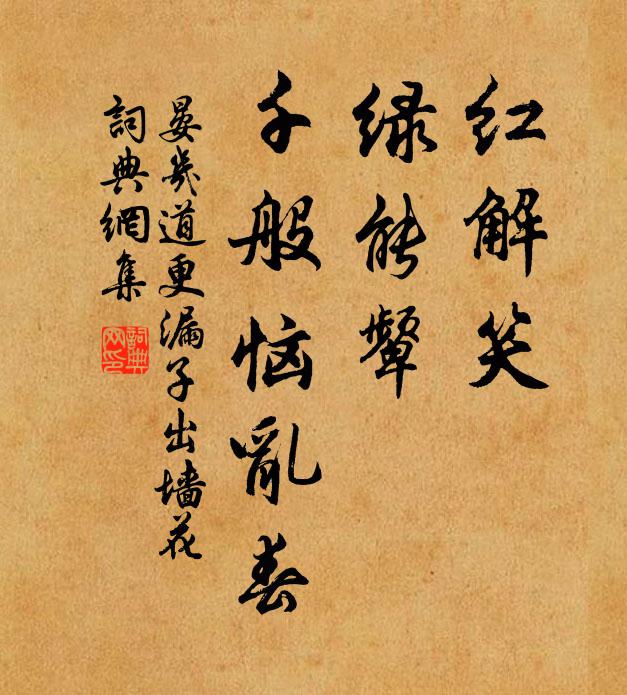 红解笑
绿能颦
千般恼乱春
晏幾道更漏子出墙花
詞典網集
詞典网印